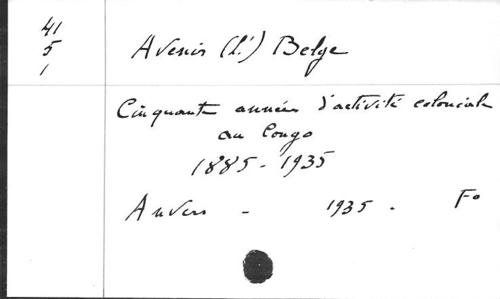 41
5
1
Avenir (L') Belge
Cinquante années d'activité coloniale
au Congo
1885-1935
Anvers - 1935. Fo